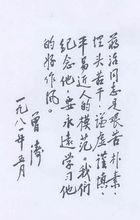 蒋治同志是艰苦朴素，
埋头苦干，谦虚谨慎，
平易近人的模范，我们
纪念他，要永远学习他
的好作风。
曾涛
一九八一年五月